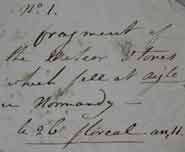 No. 1.
fragment of
the meteor stones
which fell at aigle
in Normandy —
le 26 floreal - an, 11.